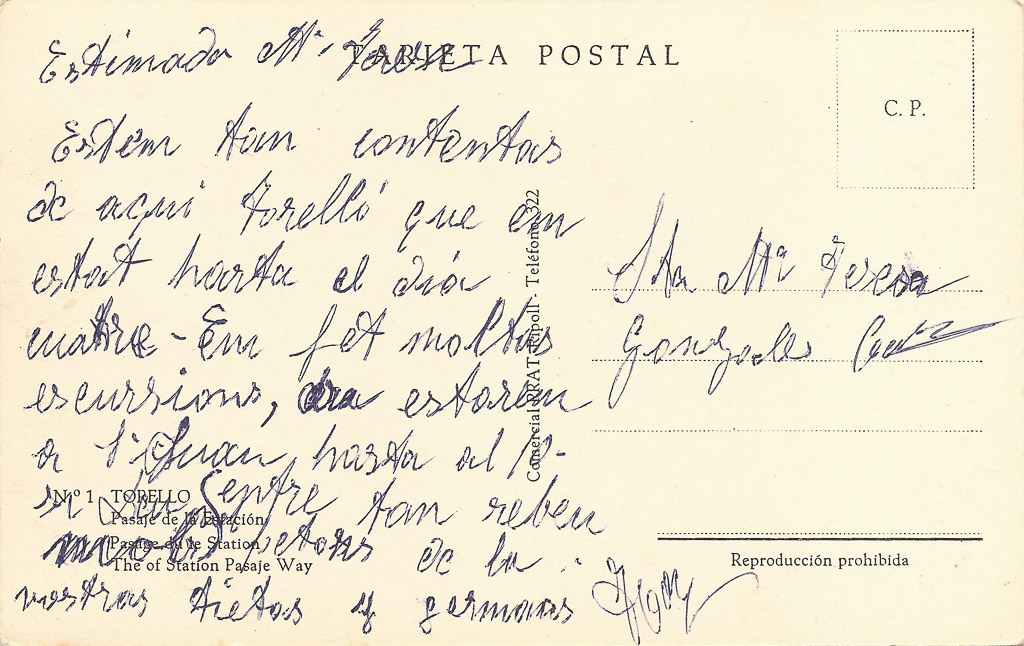 TARJETA POSTAL
C. P.
Estimada Mª Teresa
Estem tan contentas
de aqui Torelló que em
estat hasta el dia
cuatre - Em fet moltas
escursions, ara estarem
a St Juan, hasta al 12-
tan reben
petons de la
vostras tietas y germans
Sta Mª Teresa
Gonzalez
Comercial PRAT - Ripoll - Teléfono 322
N.º 1 TORELLO
Pasaje de la Estación
Pasage du le Station
The of Station Pasaje Way
Reproducción prohibida